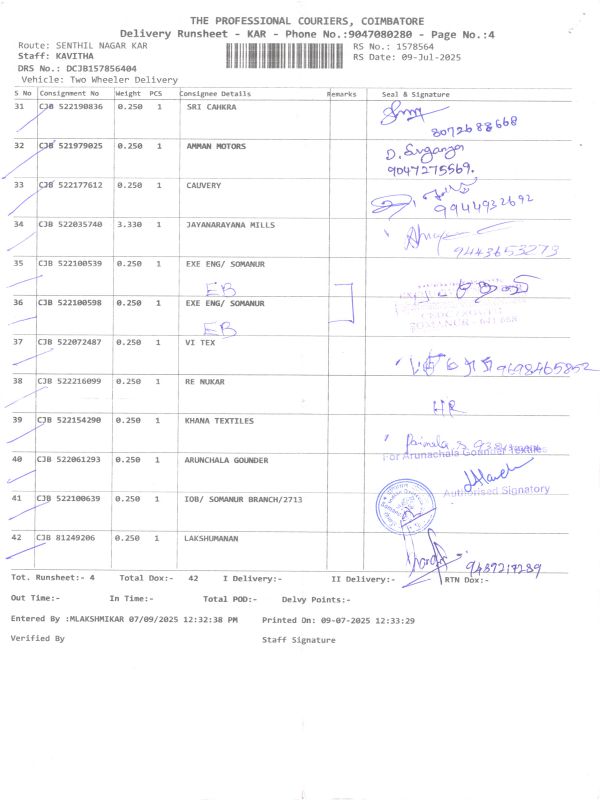 THE PROFESSIONAL COURIERS, COIMBATORE
Delivery Runsheet - KAR - Phone No.:9047080280 - Page No.:4
Route: SENTHIL NAGAR KAR RS No.: 1578564
Staff: KAVITHA RS Date: 09-Jul-2025
DRS No.: DCJB157856404
Vehicle: Two Wheeler Delivery
S No Consignment No Weight PCS Consignee Details Remarks Seal & Signature
31 CJB 522190836 0.250 1 SRI CAHKRA
8072688668
32 CJB 521979025 0.250 1 AMMAN MOTORS D. Suganya
9047275569.
33 CJB 522177612 0.250 1 CAUVERY
9944932692
34 CJB 522035740 3.330 1 JAYANARAYANA MILLS
9443653273
35 CJB 522100539 0.250 1 EXE ENG/ SOMANUR
EB
36 CJB 522100598 0.250 1 EXE ENG/ SOMANUR
EB
37 CJB 522072487 0.250 1 VI TEX
9698465852
38 CJB 522216099 0.250 1 RE NUKAR
HR
39 CJB 522154290 0.250 1 KHANA TEXTILES
For Arunachala Gounder Textiles
40 CJB 522061293 0.250 1 ARUNCHALA GOUNDER
Authorised Signatory
41 CJB 522100639 0.250 1 IOB/ SOMANUR BRANCH/2713
42 CJB 81249206 0.250 1 LAKSHUMANAN
9487217289
Tot. Runsheet:- 4 Total Dox:- 42 I Delivery:- II Delivery:- RTN Dox:-
Out Time:- In Time:- Total POD:- Delvy Points:-
Entered By :MLAKSHMIKAR 07/09/2025 12:32:38 PM Printed On: 09-07-2025 12:33:29
Verified By Staff Signature